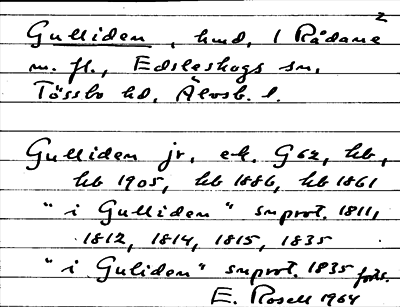 2
Gulliden, hmd, i Rådane
m. fl., Edsleskogs sn,
Tössbo hd, Älvsb. l.
Gulliden jr, ek. G62, kb,
hb 1905, hb 1886, hb 1861
"i Gulliden" snprot. 1811,
1812, 1814, 1815, 1835
"i Guliden" snprot. 1835 forts.
E. Rosell 1964